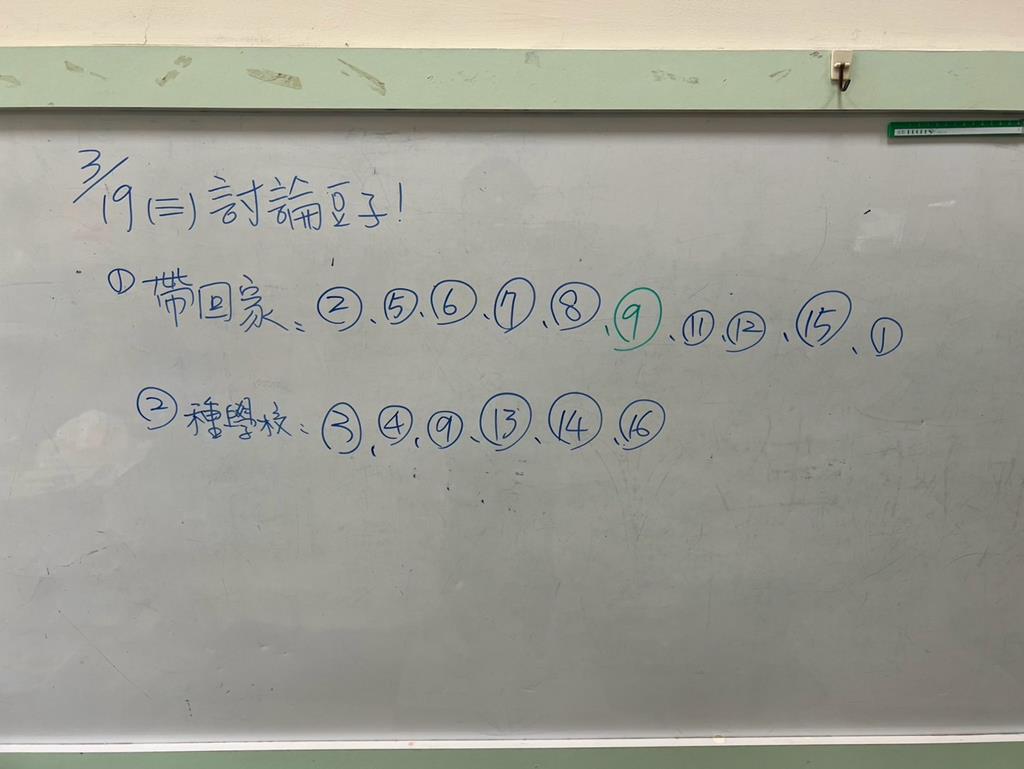 3/19(三)討論豆子!
①帶回家:②、⑤、⑥、⑦、⑧、⑨、⑪、⑫、⑮、①
②種學校:③、④、⑨、⑬、⑭、⑯